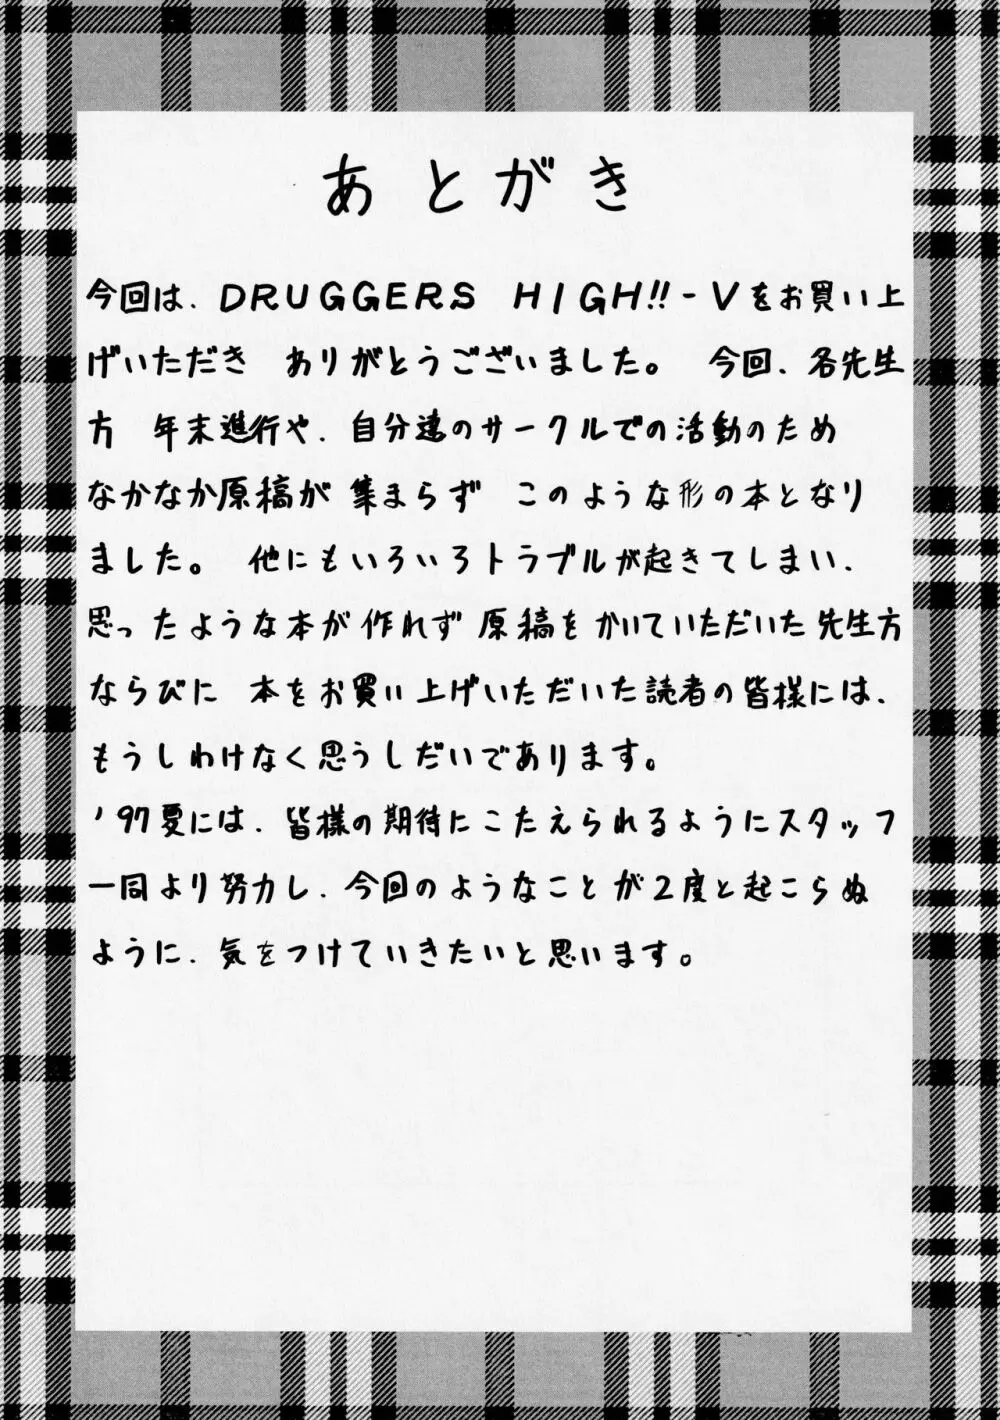 あとがき
今回は、DRUGGERS HIGH!!-Vをお買い上
げいただき ありがとうございました。 今回、各先生
方 年末進行や、自分達のサークルでの活動のため
なかなか原稿が集まらず このような形の本となり
ました。 他にもいろいろトラブルが起きてしまい、
思ったような本が作れず 原稿をかいていただいた先生方
ならびに 本をお買い上げいただいた読者の皆様には、
もうしわけなく思うしだいであります。
'97夏には、皆様の期待にこたえられるようにスタッフ
一同より努力し、今回のようなことが2度と起こらぬ
ように、気をつけていきたいと思います。